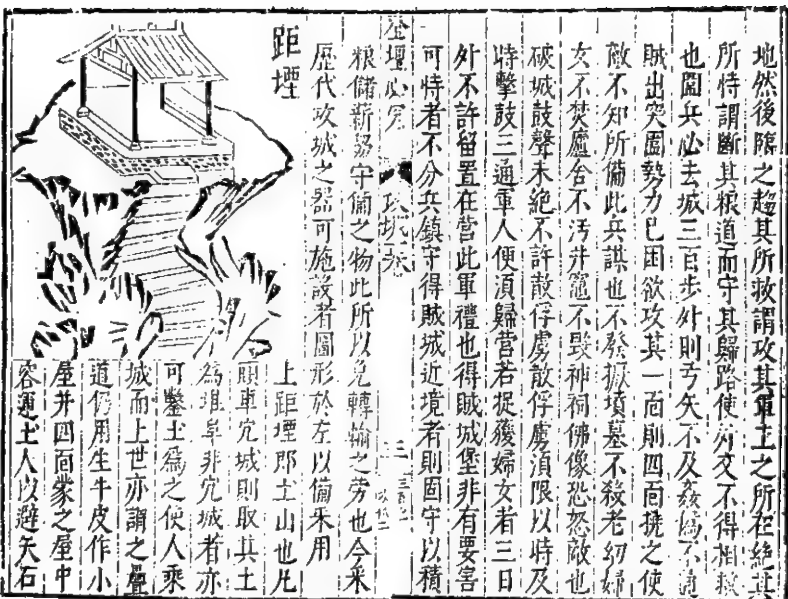 地然後臨之趨其所救謂攻其軍主之所在絕其
所恃謂斷其粮道而守其歸路使外交不得相救
也圍兵必去城三百步外則弓矢不及姦偽不通
賊出突圍勢力已困欲攻其一面則四面撓之使
敵不知所備此兵謀也不發掘墳墓不殺老幼婦
女不焚廬舍不汚井竈不毀神祠佛像恐怒敵也
破城鼓聲未絕不許散俘虜散俘虜須限以時及
時擊鼓三通軍人便須歸營若捉獲婦女者三日
外不許留置在營此軍禮也得賊城堡非有要害
可恃者不分兵鎮守得賊城近境者則固守以積
登壇必究 攻城卷 三
粮儲薪芻守備之物此所以免轉輸之勞也今采
歷代攻城之器可施設者圖形於左以備采用
距堙
上距堙即土山也凡
頭車穴城則取其土
為堆阜非穴城者亦
可鑿土為之使人乘
城而上世亦謂之壘
道仍用生牛皮作小
屋并四面蒙之屋中
容運土人以避矢石